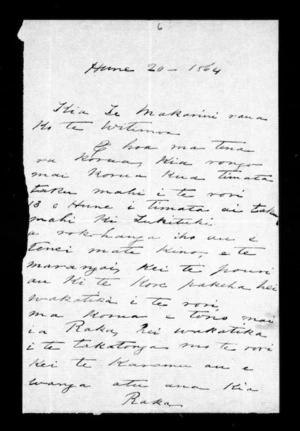 6
Hune 20 - 1864
Kia Te Makarini raua
Ko te Witimoa
E hoa ma tena
ra korua, Kia rongo
mai korua kua timata
taku mahi i te rori
13 o Hune i timata ai taku
mahi ki
a au e
tenei mate kino, e te
marangai, kei te pouri
au ki te kore pakeha hei
wakatika i te rori,
ma korua e tono mai
ia Raka, hei wakatika
i te takotoga mo te rori
kei te Karamu au e
wanga atu ana kia
Raka